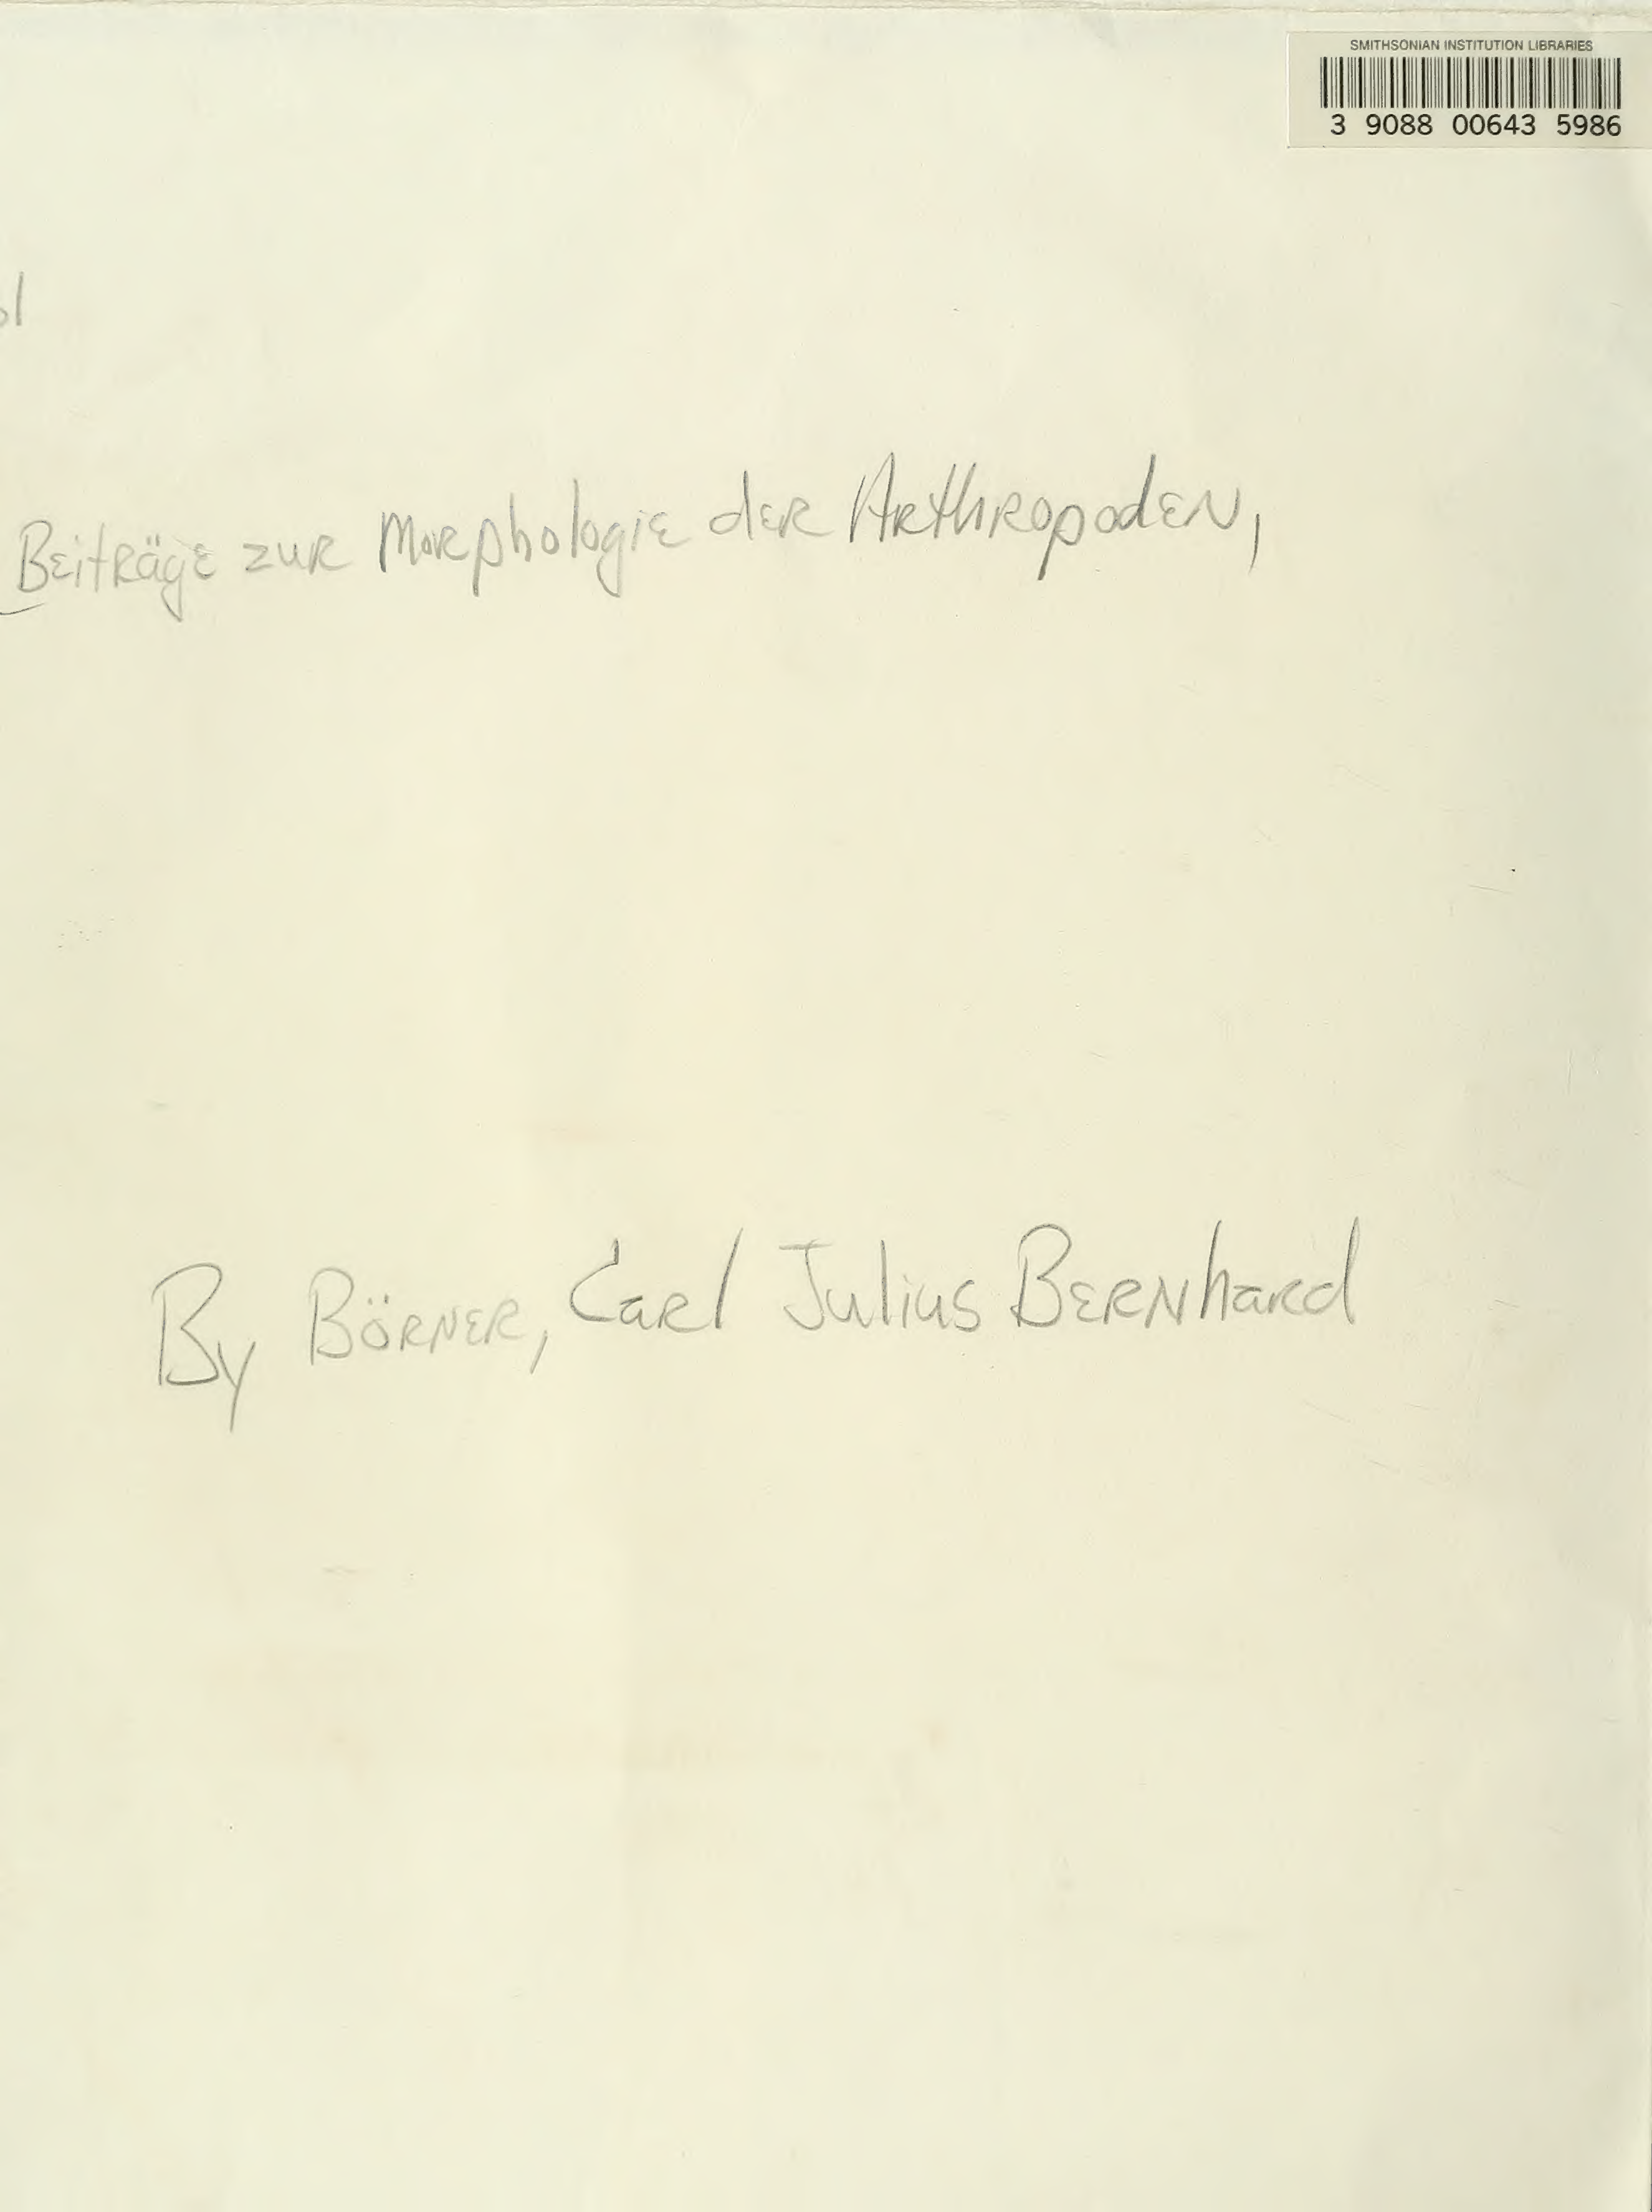 SMITHSONIAN INSTITUTION LIBRARIES
3 9088 00643 5986
Beiträge zur Morphologie der Arthropoden,
By Börner, Carl Julius Bernhard